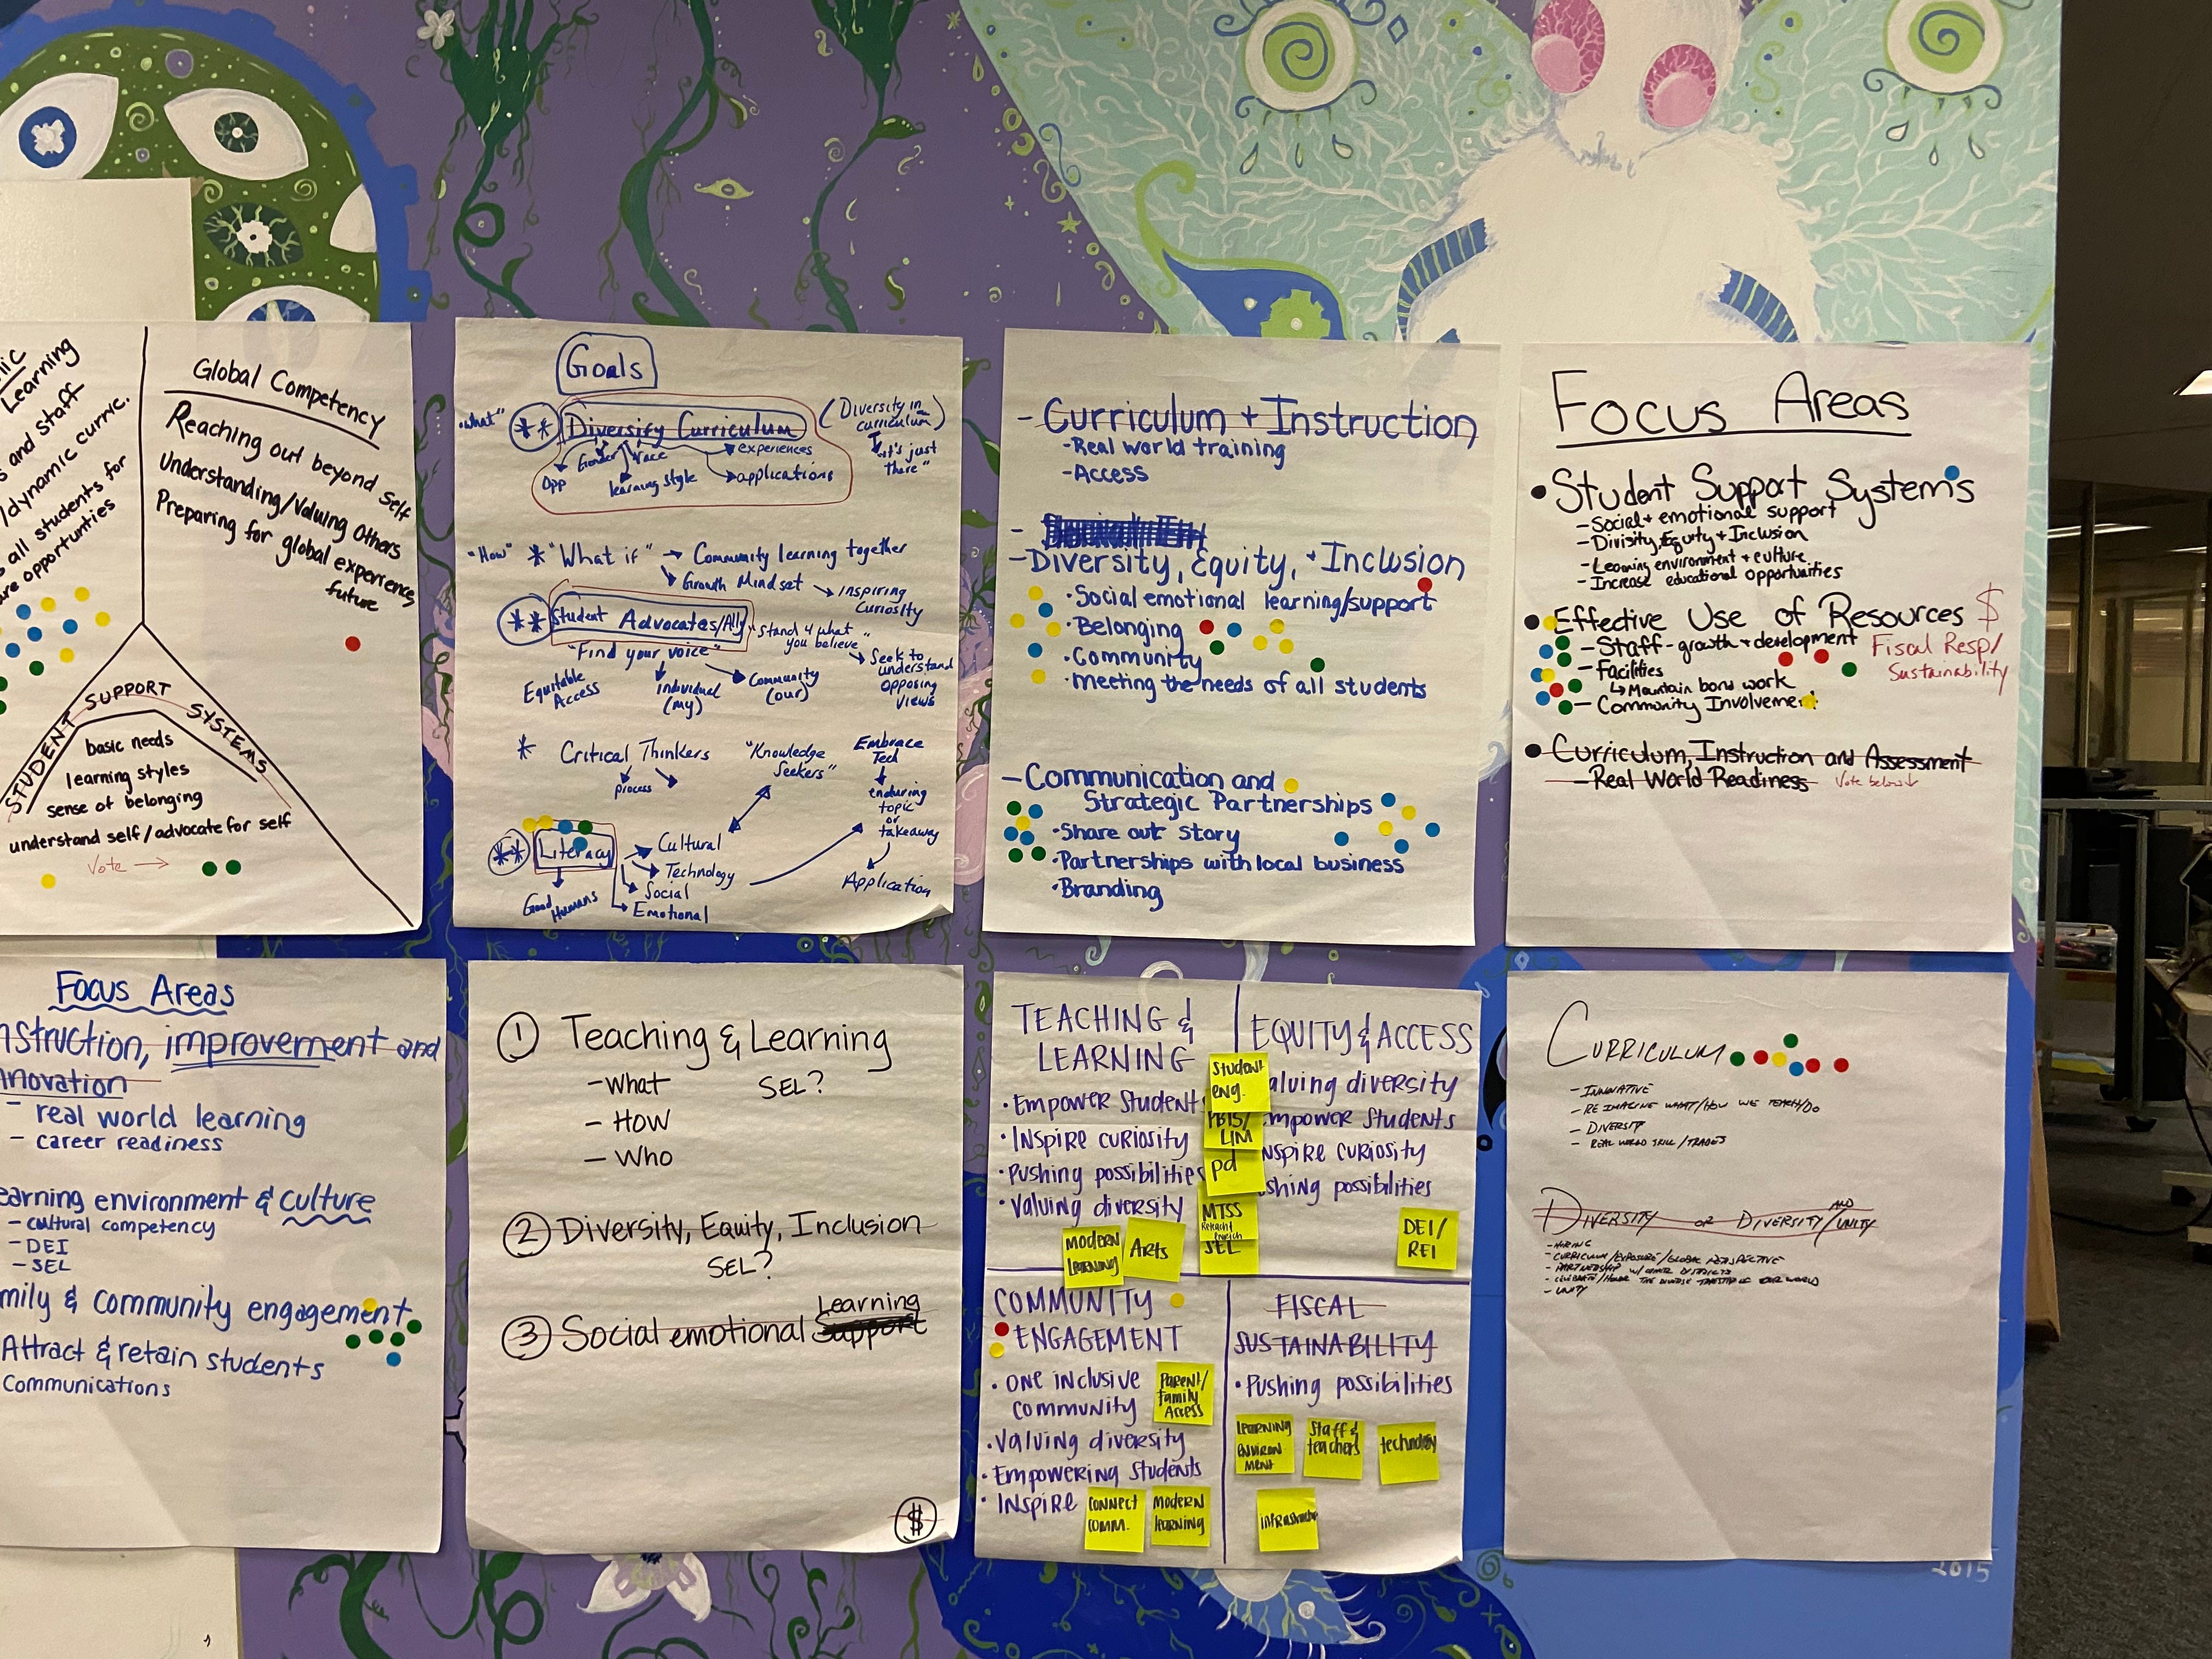 Learning
and Staff
/dynamic curric.
all students for
opportunities
Global Competency
Reaching out beyond self
Understanding/Valuing Others
Preparing for global experiences
future
STUDENT SUPPORT SYSTEMS
basic needs
learning styles
sense of belonging
understand self/advocate for self
Vote →
Goals
"What" ** Diversify Curriculum
(Diversity in
curriculum)
"it's just
there"
Gender race experiences
opp learning style applications
"How" * "What if" → Community learning together
Growth Mindset → Inspiring
Curiosity
** Student Advocates/Ally
"Stand 4 what
you believe"
"Find your voice"
Seek to
understand
opposing
views
Equitable
Access
Individual
(my)
Community
(our)
* Critical Thinkers
process
"Knowledge
Seekers"
Embrace
Tech
enduring
topic
or
takeaway
Application
** Literacy
Cultural
Technology
Social
Emotional
Good
Humans
- Curriculum + Instruction
-Real world training
-Access
-Diversity, Equity, + Inclusion
•Social emotional learning/support
•Belonging
•Community
•meeting the needs of all students
-Communication and
Strategic Partnerships
•Share out story
•Partnerships with local business
•Branding
Focus Areas
• Student Support Systems
-Social + emotional support
-Divisity, Equity + Inclusion
-Learning environment + culture
-Increase educational opportunities
• Effective Use of Resources $
-Staff - growth + development
Fiscal Resp/
Sustainability
-Facilities
↳ Mountain bond work
-Community Involvement
• Curriculum, Instruction and Assessment
-Real World Readiness
Vote below ↓
Focus Areas
nstruction, improvement and
nnovation
- real world learning
- career readiness
earning environment & culture
- cultural competency
- DEI
- SEL
mily & community engagement
Attract & retain students
Communications
① Teaching & Learning
-What SEL?
- How
- Who
② Diversity, Equity, Inclusion
SEL?
③ Social emotional Learning
Support
$
TEACHING &
LEARNING
• Empower Student
• Inspire curiosity
• Pushing possibilities
• Valuing diversity
Student
eng.
PBIS/
LIM
pd
MTSS
SEL
Modern
learning
Arts
EQUITY & ACCESS
aluing diversity
mpower Students
nspire curiosity
shing possibilities
DEI/
REI
COMMUNITY
ENGAGEMENT
• One inclusive
community
Parent/
Family
Access
• Valuing diversity
• Empowering students
• Inspire
Connect
comm.
Modern
learning
FISCAL
SUSTAINABILITY
• Pushing possibilities
Learning
Environ
ment
Staff &
teachers
technology
infrastructure
CURRICULUM
- INNOVATIVE
- RE IMAGINE WHAT/HOW WE TEACH/DO
- DIVERSITY
- REAL WORLD SKILL/TRADES
DIVERSITY OR DIVERSITY AND/UNITY
- HIRING
- CURRICULUM/EXPOSURE/GLOBAL PERSPECTIVE
- PARTNERSHIP W/ OTHER DISTRICTS
- CELEBRATE/HONOR THE DIVERSE TAPESTRY OF OUR WORLD
- UNITY
2015